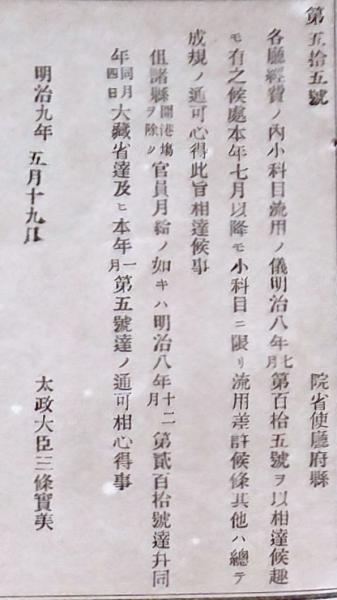 第五拾五號
院省使廳府縣
各廳經費ノ內小科目流用ノ儀明治八年七月第百拾五號ヲ以相達候趣
モ有之候處本年七月以降モ小科目ニ限リ流用差許候條其他ハ總テ
成規ノ通可心得此旨相達候事
但諸縣開港場ヲ除ク官員月給ノ如キハ明治八年十二月第貳百拾號達幷同
年同月四日大藏省達及ヒ本年一月第五號達ノ通可相心得事
明治九年五月十九日
太政大臣三條實美